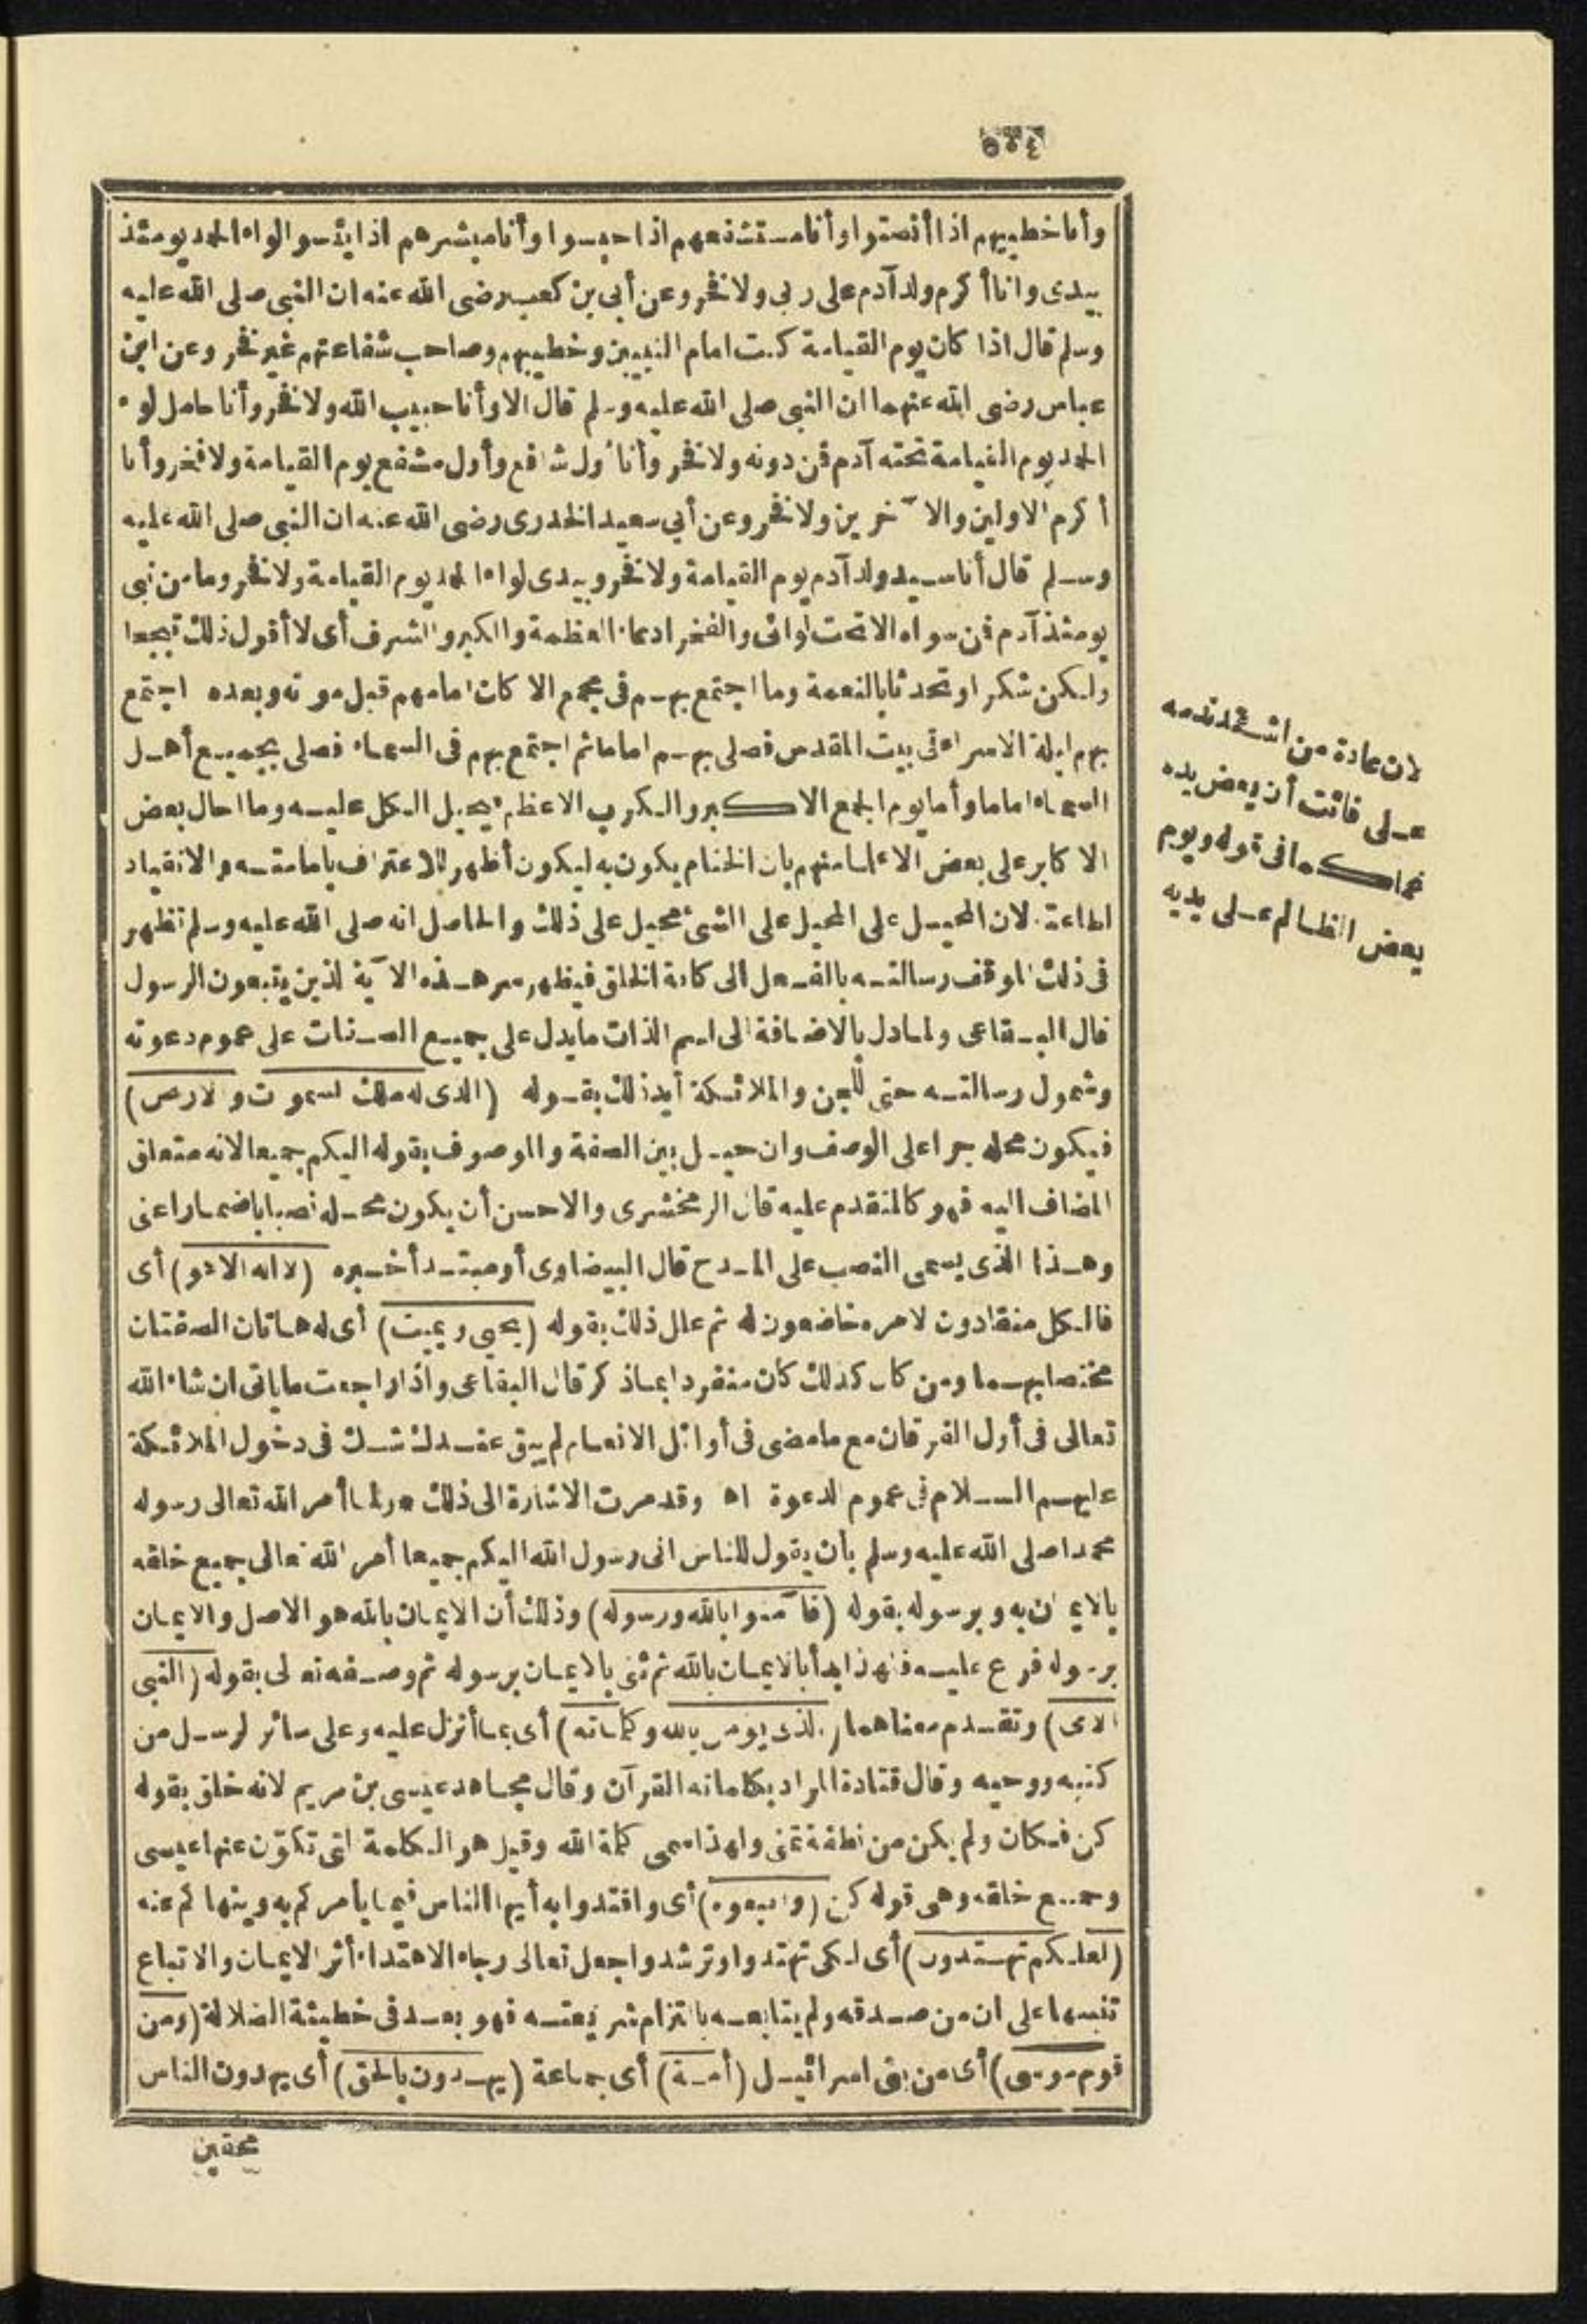 ٥٠٤
وأنا خطيبهم اذا أنصتوا وأنا مستشفعهم اذا حبسوا وأنا مبشرهم اذا يئسوا لواء الحمد يومئذ
بيدى وانا أكرم ولد آدم على ربى ولا فخر وعن أبى بن كعب رضى الله عنه ان النبى صلى الله عليه
وسلم قال اذا كان يوم القيامة كنت امام النبيين وخطيبهم وصاحب شفاعتهم غير فخر وعن ابن
عباس رضى الله عنهما ان النبى صلى الله عليه وسلم قال الا وأنا حبيب الله ولا فخر وأنا حامل لواء
الحمد يوم القيامة تحته آدم فمن دونه ولا فخر وأنا أول شافع وأول مشفع يوم القيامة ولا فخر وأنا
أكرم الاولين والآخرين ولا فخر وعن أبى سعيد الخدرى رضى الله عنه ان النبى صلى الله عليه
وسلم قال أنا سيد ولد آدم يوم القيامة ولا فخر وبيدى لواء الحمد يوم القيامة ولا فخر وما من نبى
يومئذ آدم فمن سواه الا تحت لوائى والفخر ادعاء العظمة والكبر والشرف أى لا أقول ذلك تبجحا
ولكن شكرا وتحدثا بالنعمة وما اجتمع بهم فى مجمع الا كان امامهم قبل موته وبعده اجتمع
بهم ليلة الاسراء فى بيت المقدس فصلى بهم اماما ثم اجتمع بهم فى السماء فصلى بجميع أهل
السماء اماما وأما يوم الجمع الاكبر والكرب الاعظم يحيل الكل عليه وما احال بعض
الاكابر على بعض الا علما منهم بان الختام يكون به ليكون أظهر للاعتراف بامامته والانقياد
لطاعته لان المحيل على المحيل على الشئ محيل على ذلك والحاصل انه صلى الله عليه وسلم تظهر
فى ذلك الموقف رسالته بالفعل الى كافة الخلق فيظهر سر هذه الآية الذين يتبعون الرسول
قال البقاعى ولما دل بالاضافة الى اسم الذات ما يدل على جميع الصفات على عموم دعوته
وشمول رسالته حتى للجن والملائكة أيد ذلك بقوله (الذى له ملك السموت والارض)
فيكون محله جرا على الوصف وان حيل بين الصفة والموصوف بقوله اليكم جميعا لانه متعلق
المضاف اليه فهو كالمتقدم عليه قال الزمخشرى والاحسن أن يكون محله نصبا باضمار اعنى
وهذا الذى يسمى النصب على المدح قال البيضاوى أو مبتدأ خبره (لا اله الا هو) أى
فالكل منقادون لامره خاضعون له ثم علل ذلك بقوله (يحيى ويميت) أى له هاتان الصفتان
مختصا بهما ومن كان كذلك كان منفردا بما ذكر قال البقاعى واذا راجعت ما يأتى ان شاء الله
تعالى فى أول الفرقان مع ما مضى فى أوائل الانعام لم يبق عندك شك فى دخول الملائكة
عليهم السلام فى عموم الدعوة اه وقد مرت الاشارة الى ذلك * ولما أمر الله تعالى رسوله
محمدا صلى الله عليه وسلم بأن يقول للناس انى رسول الله اليكم جميعا أمر الله تعالى جميع خلقه
بالايمان به وبرسوله بقوله (فآمنوا بالله ورسوله) وذلك أن الايمان بالله هو الاصل والايمان
برسوله فرع عليه فلهذا بدأ بالايمان بالله ثم ثنى بالايمان برسوله ثم وصفه تعالى بقوله (النبى
الامى) وتقدم معناهما (الذى يؤمن بالله وكلماته) أى بما أنزل عليه وعلى سائر الرسل من
كتبه ووحيه وقال قتادة المراد بكلماته القرآن وقال مجاهد عيسى بن مريم لانه خلق بقوله
كن فكان ولم يكن من نطفة تمنى ولهذا سمى كلمة الله وقيل هو الكلمة التى تكون عنها عيسى
وجميع خلقه وهى قوله كن (واتبعوه) أى واقتدوا به أيها الناس فيما يأمركم به وينهاكم عنه
(لعلكم تهتدون) أى لكى تهتدوا وترشدوا جعل تعالى رجاء الاهتداء أثر الايمان والاتباع
تنبيها على ان من صدقه ولم يتابعه بالتزام شريعته فهو بعد فى خطيئة الضلالة (ومن
قوم موسى) أى من بنى اسرائيل (أمة) أى جماعة (يهدون بالحق) أى يهدون الناس
محقين
لان عادة من اشتد ندمه
على فائت أن يعض يده
كما فى قوله ويوم
يعض الظالم على يديه